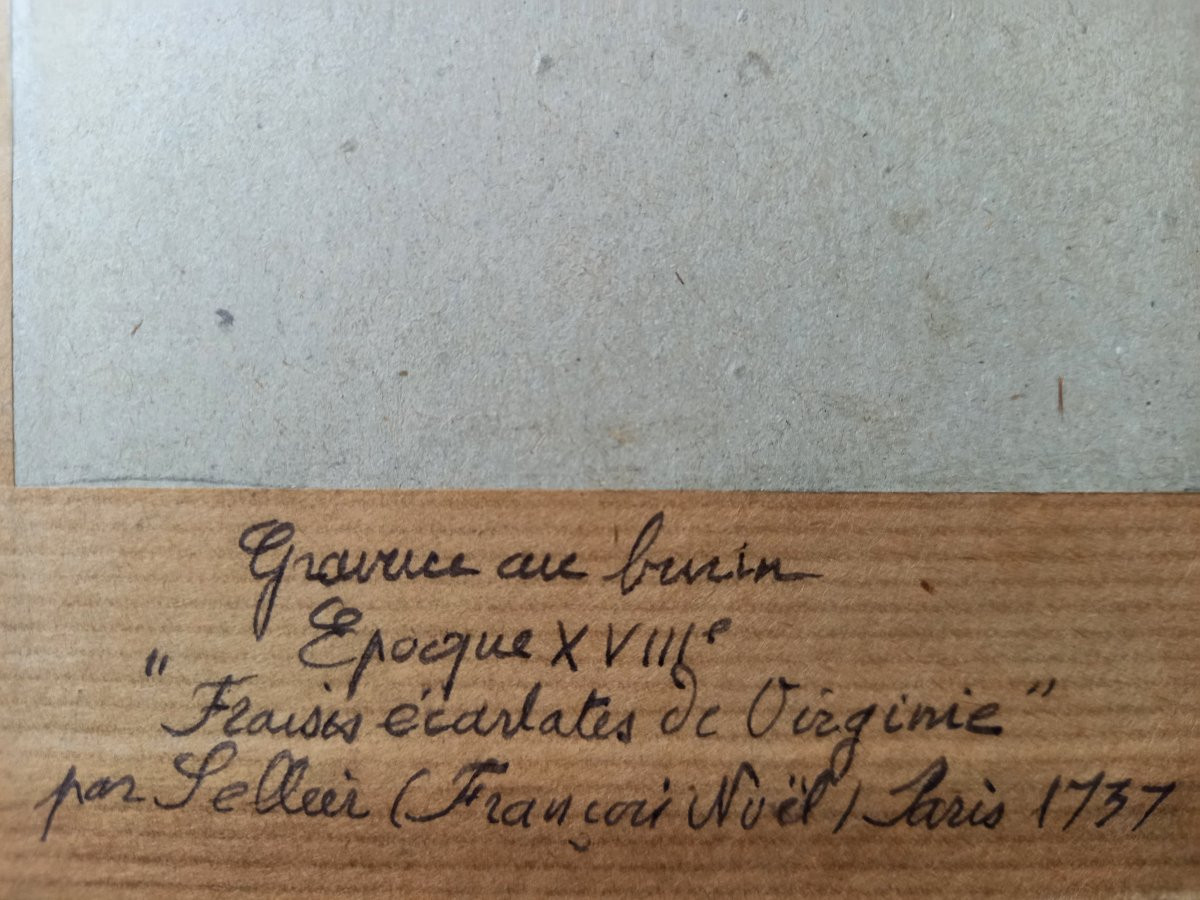 Gravure au burin
Epoque XVIIIe
" Fraises écarlates de Virginie "
par Sellier (François Noël) Paris 1737